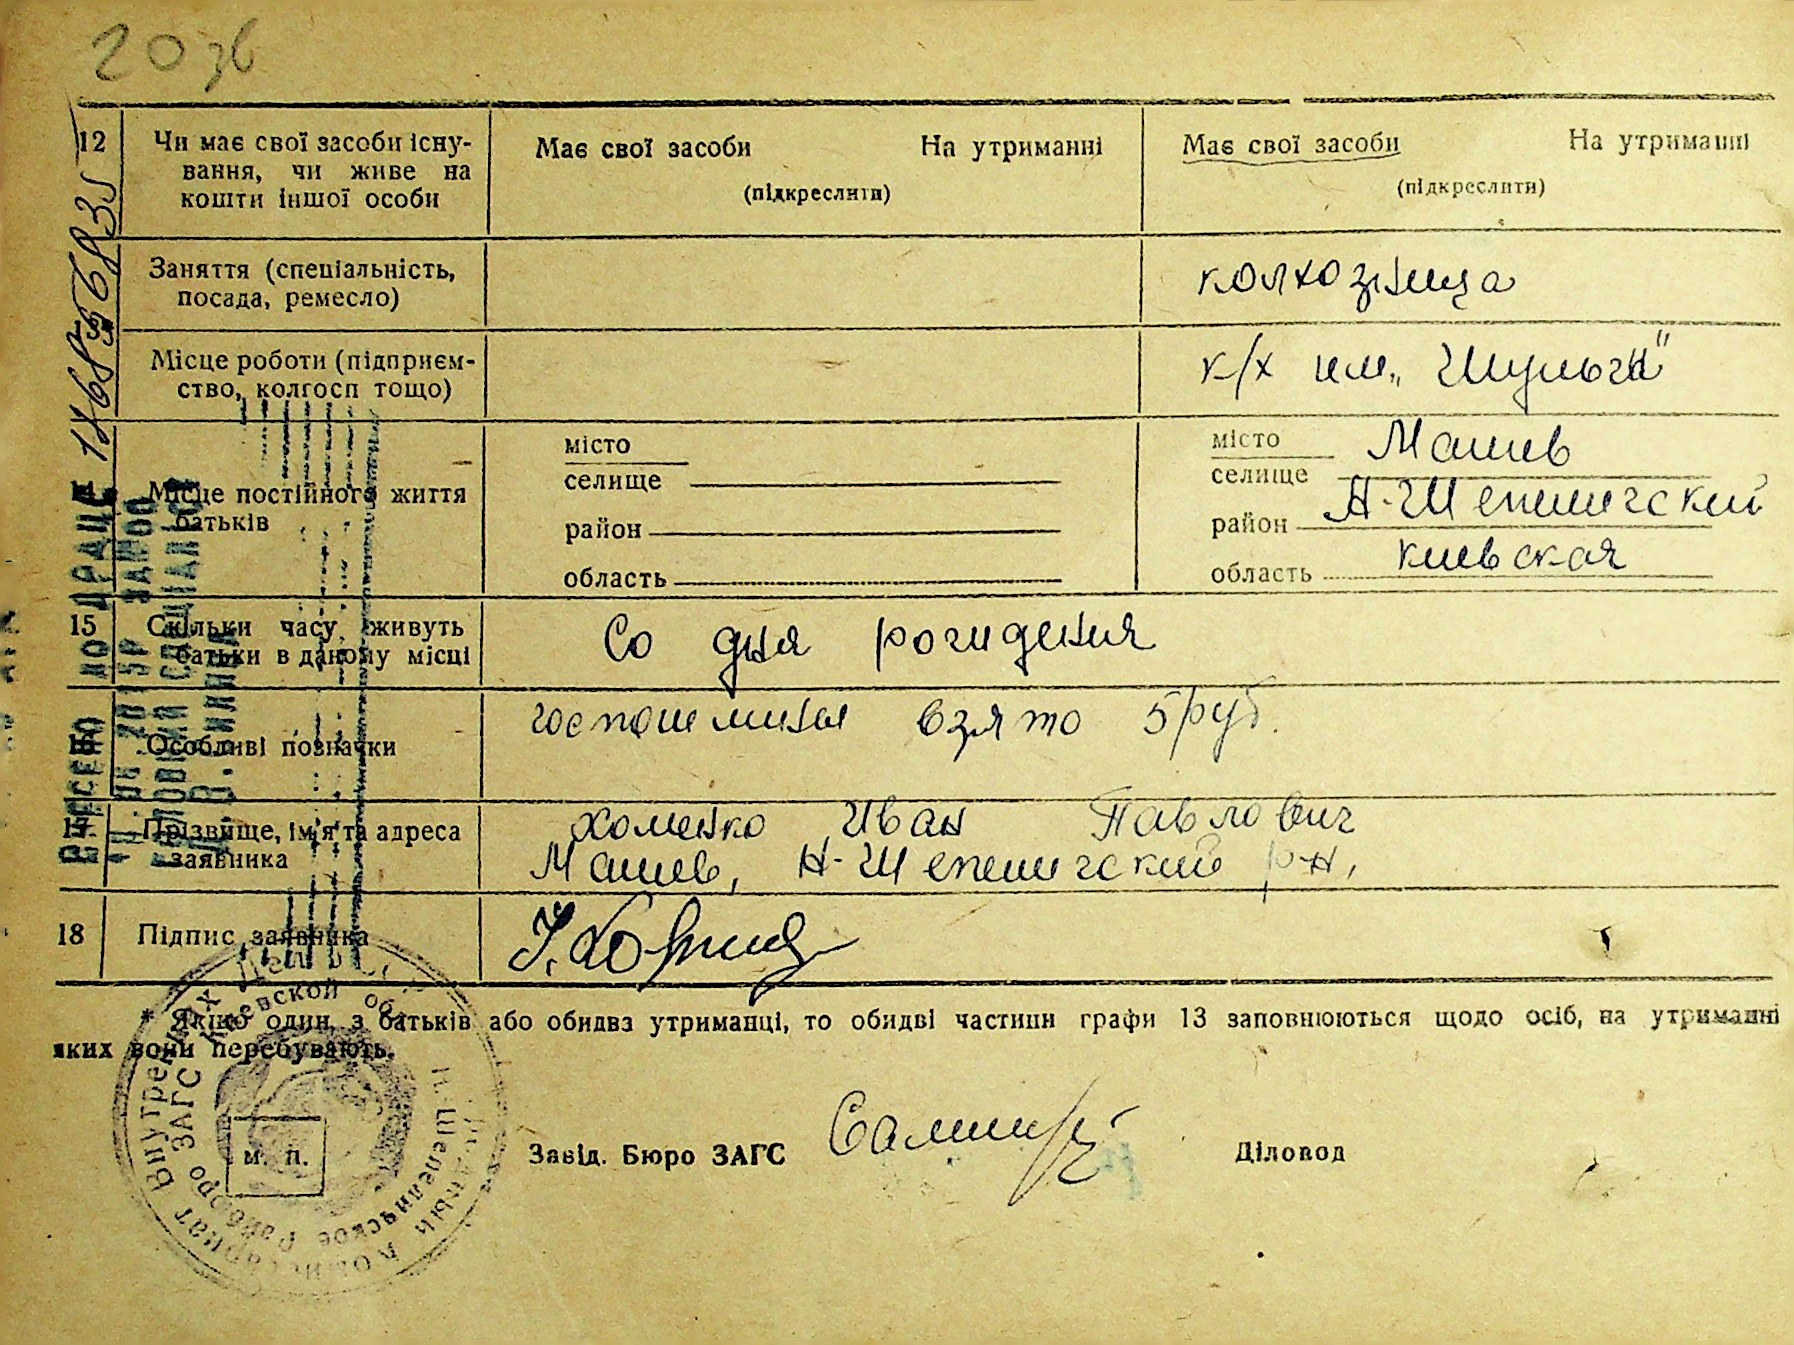 20 зв
12 Чи має свої засоби існу- Має свої засоби На утриманні Має свої засоби На утриманні
вання, чи живе на (підкреслити) (підкреслити)
кошти іншої особи
Заняття (спеціальність, колхозница
посада, ремесло)
Місце роботи (підприєм- к/х им. „Шульги"
ство, колгосп тощо)
місто місто Машев
селище селище
Місце постійного життя Н-Шепеличский
батьків район район
область область киевская
15 Скільки часу живуть Со дня рождения
батьки в даному місці
16 Особливі позначки госпошлины взято 5 руб.
17 Прізвище, ім'я та адреса Хоменко Иван Павлович
заявника Машев, Н-Шепеличский р-н,
18 Підпис заявника
* Якщо один з батьків або обидва утриманці, то обидві частини графи 13 заповнюються щодо осіб, на утриманні
яких вони перебувають.
м. п. Завід. Бюро ЗАГС Діловод
ВНЕСЕНО ДО ДРАЦС
Киевской обл.
Н. Шепеличское райбюро ЗАГС